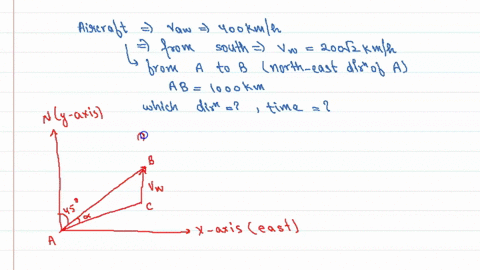 Aircraft => Vaw => 400 km/h
=> from south => Vw = 200√2 km/h
from A to B (north-east dirⁿ of A)
AB = 1000 km
which dirⁿ = ? , time = ?
N (y-axis)
B
45°
Vw
α
C
A
x-axis (east)